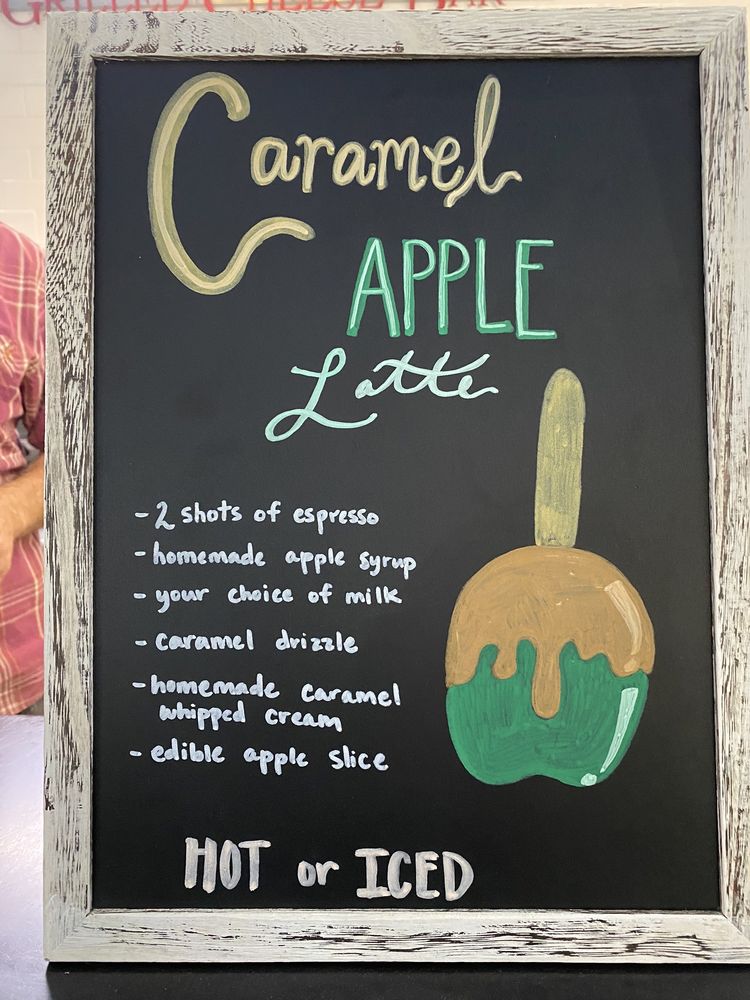 GRILLED CHEESE BAR
Caramel
APPLE
Latte
- 2 shots of espresso
- homemade apple syrup
- your choice of milk
- caramel drizzle
- homemade caramel
whipped cream
- edible apple slice
HOT or ICED